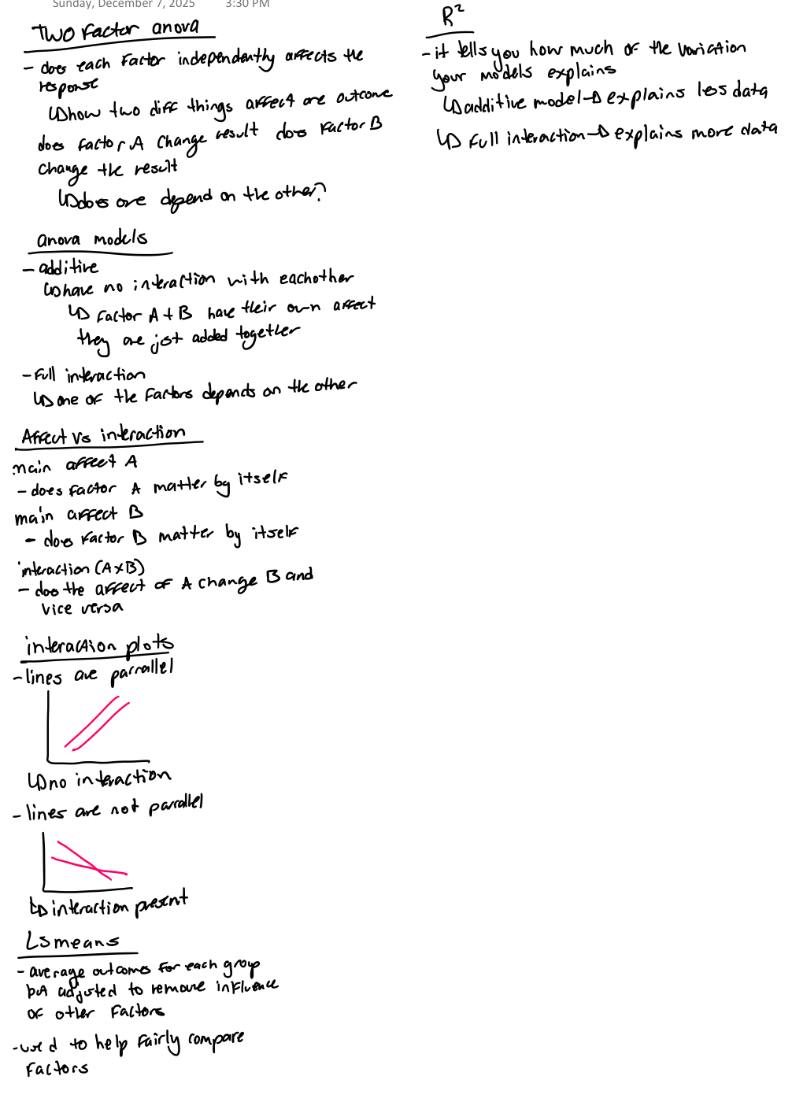 Sunday, December 7, 2025 3:30 PM
Two Factor anova
- does each Factor independently affects the
response
↳ how two diff things affect are outcome
does factor A change result does Factor B
change the result
↳ does one depend on the other?
anova models
- additive
↳ have no interaction with eachother
↳ Factor A + B have their own affect
they are just added together
- Full interaction
↳ one of the Factors depends on the other
Affect vs interaction
main affect A
- does factor A matter by itself
main affect B
- does Factor B matter by itself
interaction (A×B)
- doo the affect of A change B and
vice versa
interaction plots
- lines are parrallel
↳ no interaction
- lines are not parallel
↳ interaction present
Lsmeans
- average outcomes for each group
but adjusted to remove influence
of other Factors
- used to help fairly compare
Factors
R²
- it tells you how much of the variation
your models explains
↳ additive model → explains less data
↳ Full interaction → explains more data